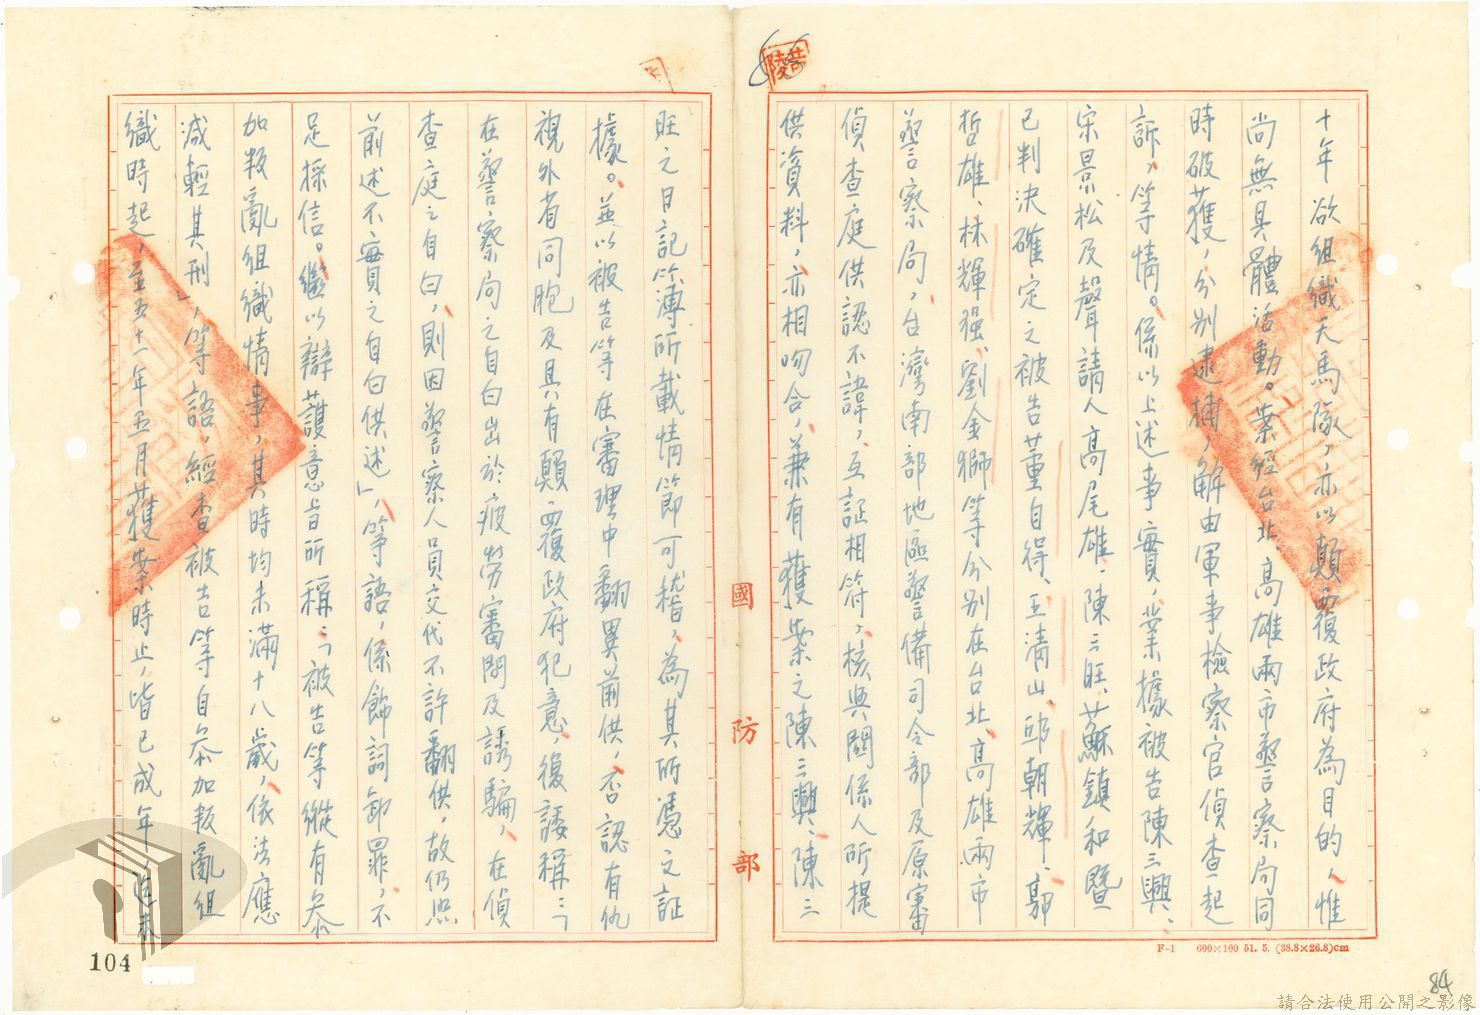 十年欲組織天馬隊，亦以顛覆政府為目的，惟
尚無具體活動。案經台北、高雄兩市警察局同
時破獲，分別逮捕，解由軍事檢察官偵查起
訴，等情。係以上述事實，業據被告陳三興、
宋景松及聲請人高尾雄、陳三旺、蘇鎮和暨
已判決確定之被告董自得、王清山、邱朝輝、郭
哲雄、林輝强、劉金獅等分別在台北、高雄兩市
警察局，台灣南部地區警備司令部及原審
偵查庭供認不諱，互証相符，核與關係人所提
供資料，亦相吻合，兼有獲案之陳三興、陳三
旺之日記簿所載情節可稽，為其所憑之証
據。並以被告等在審理中翻異前供，否認有仇
視外省同胞及具有顛覆政府犯意，復諉稱：「
在警察局之自白出於疲勞審問及誘騙，在偵
查庭之自白，則因警察人員交代不許翻供，故仍照
前述不實之自白供述」，等語，係飾詞卸罪，不
足採信。繼以辯護意旨所稱：「被告等縱有參
加叛亂組織情事，其時均未滿十八歲，依法應
減輕其刑」，等語，經查被告等自參加叛亂組
織時起，至五十一年五月獲案時止，皆已成年
國防部
F-1 600×100 51. 5. (38.8×26.8)cm
104
84
請合法使用公開之影像